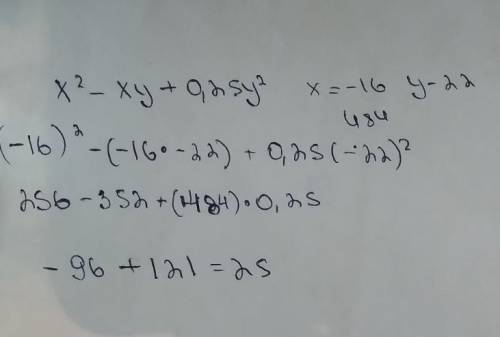 x² - xy + 0,25y² x = -16 y - 22
484
(-16)² - (-16 · -22) + 0,25 (-22)²
256 - 352 + (484) · 0,25
- 96 + 121 = 25